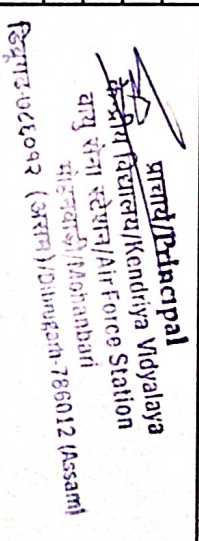 प्राचार्य/Principal
केन्द्रीय विद्यालय/Kendriya Vidyalaya
वायु सेना स्टेशन/Air Force Station
मोहनबारी/Mohanbari
डिब्रुगढ़-७८६०१२ (असम)/Dibrugarh-786012 (Assam)